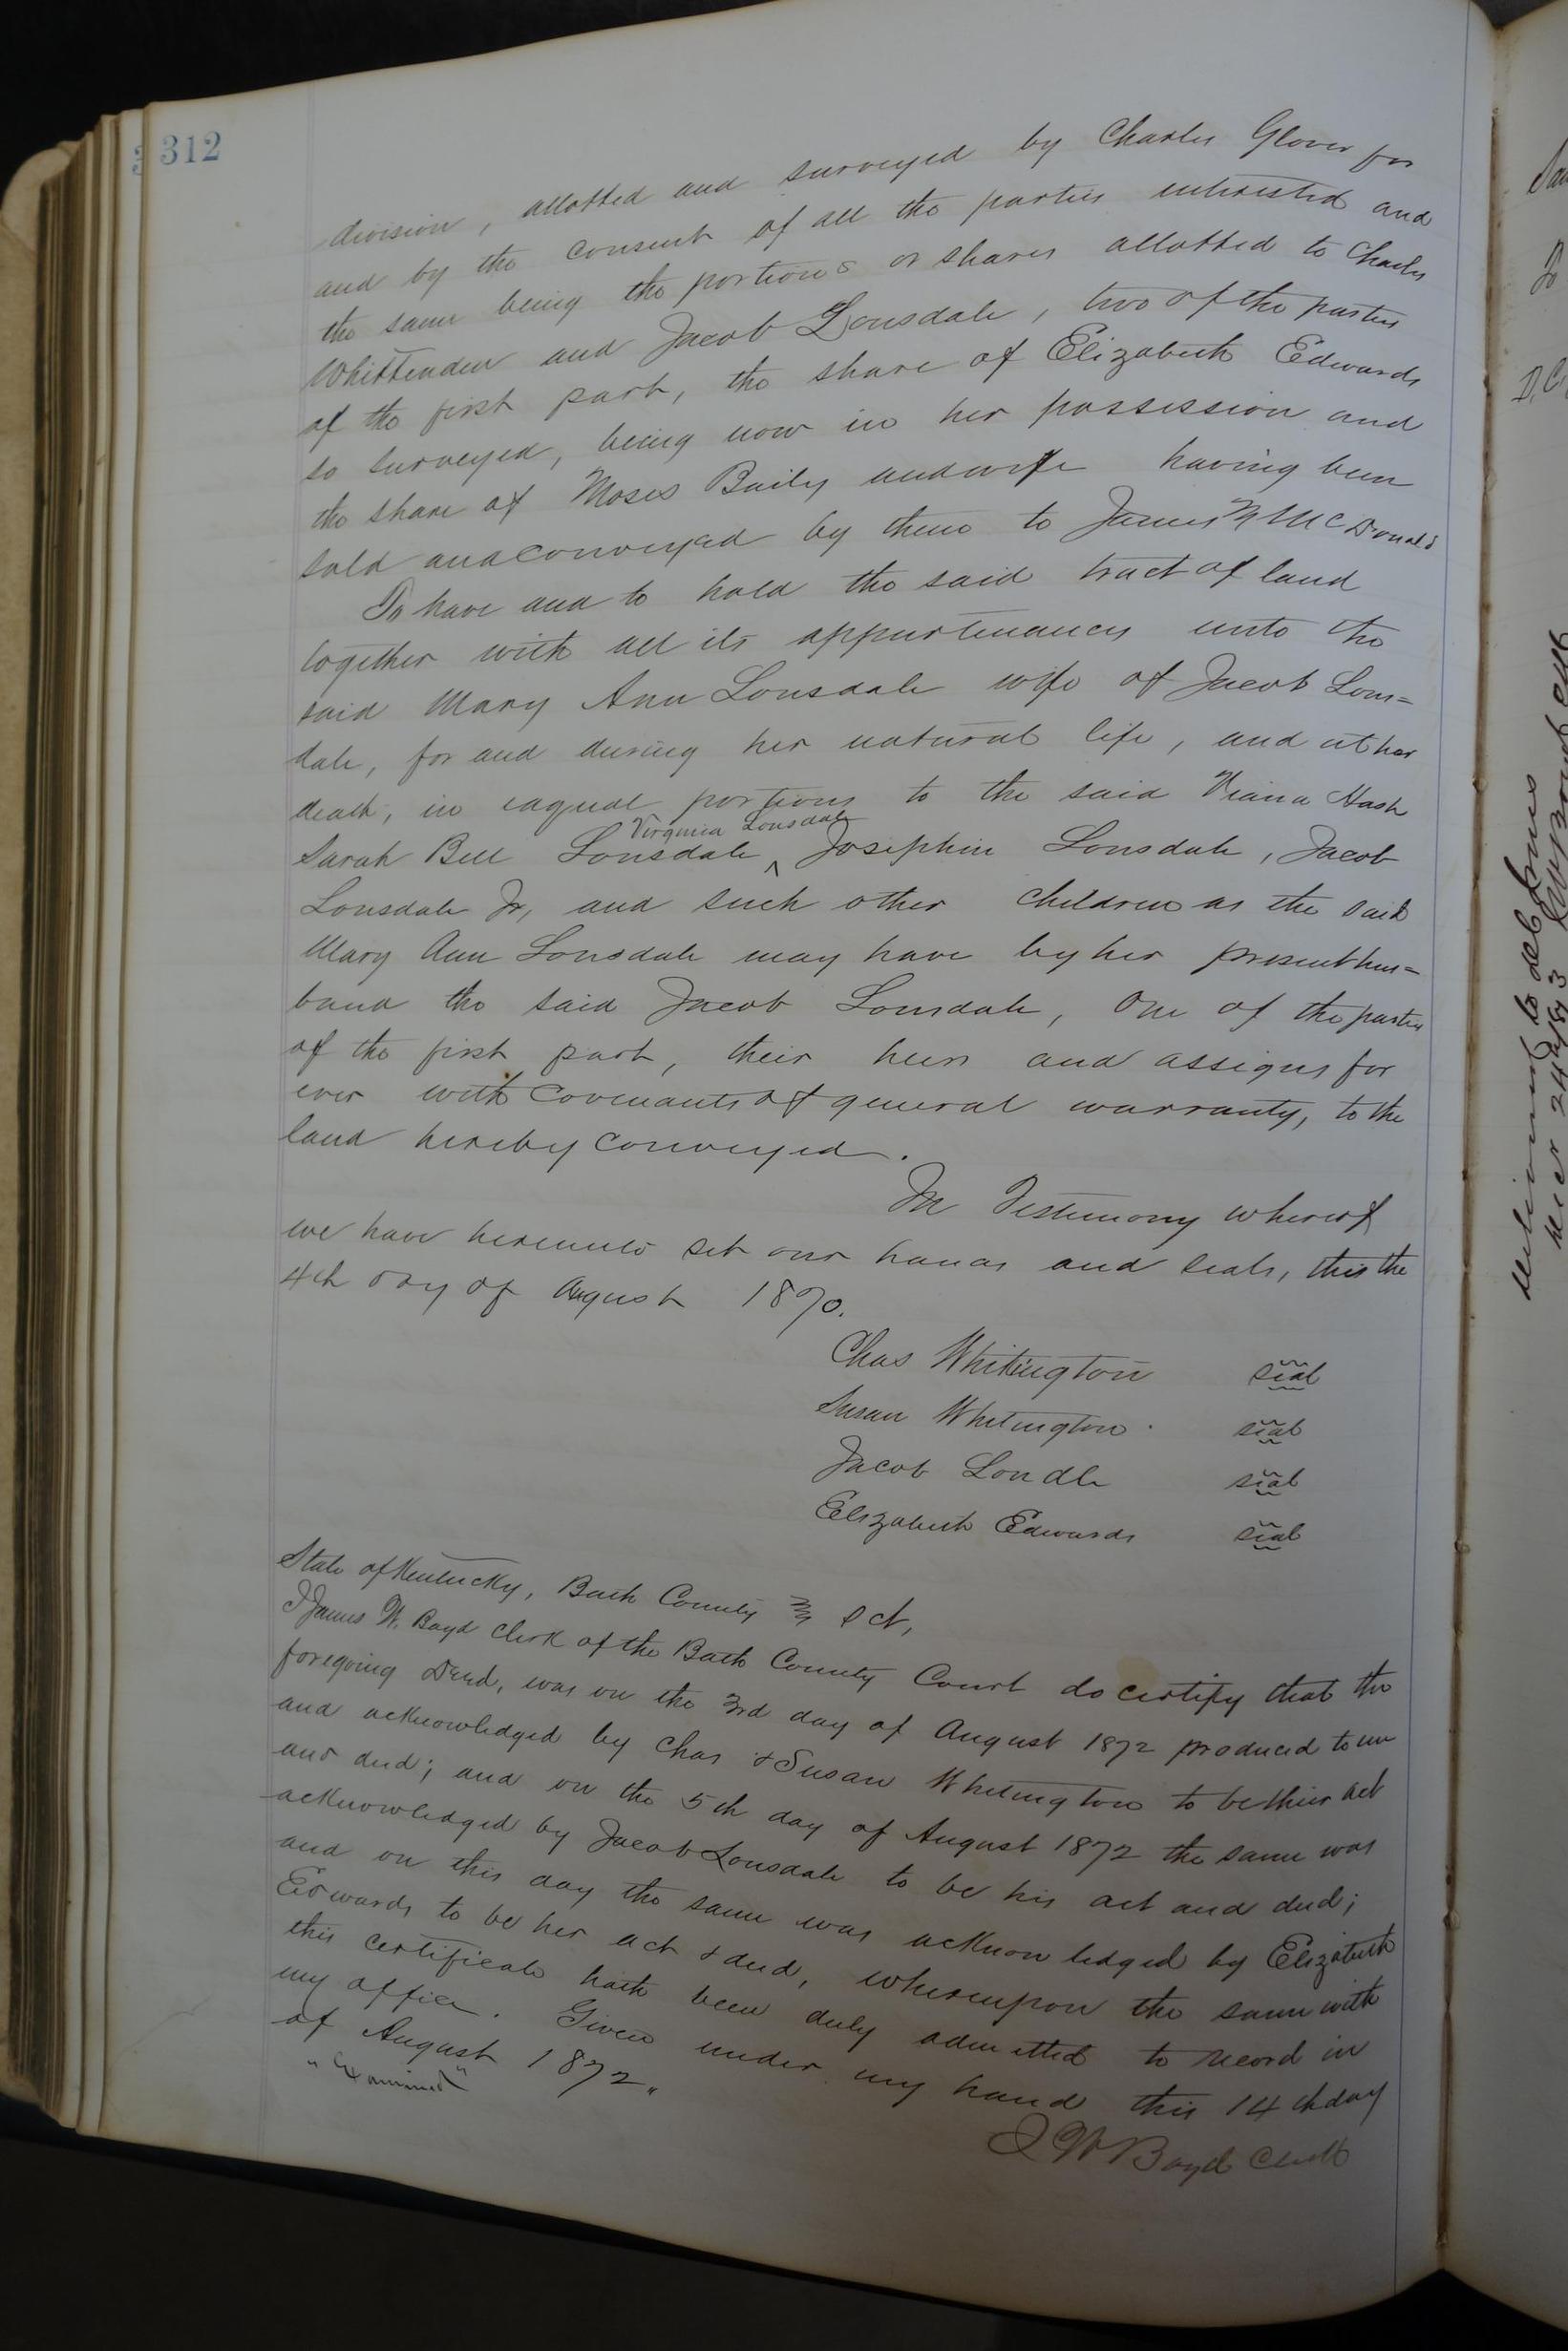 312
division, allotted and surveyed by Charles Glover for
and by the consent of all the parties interested and
the same being the portions or shares allotted to Charles
Whittenden and Jacob Lonsdale, two of the parties
of the first part, the share of Elizabeth Edwards
so surveyed, being now in her possession and
the share of Moses Baily and wife having been
sold and conveyed by them to James McDonald
To have and to hold the said tract of land
together with all its appurtenances unto the
said Mary Ann Lonsdale wife of Jacob Lons=
dale, for and during her natural life, and at her
death, in eaqual portions to the said Viana Nash
Virginia Lonsdale
Sarah Bell Lonsdale ^ Josephine Lonsdale, Jacob
Lonsdale Jr, and such other children as the said
Mary Ann Lonsdale may have by her present hus=
band the said Jacob Lonsdale, One of the parties
of the first part, their heirs and assigns for
ever with Covenants of general warranty, to the
land hereby conveyed.
In Testimony whereof
we have hereunto set our hands and seals, this the
4th day of August 1870.
Chas Whitington seal
Susan Whitington seal
Jacob Londle seal
Elizabeth Edwards seal
State of Kentucky, Bath County } Sct,
I James W. Boyd Clerk of the Bath County Court do certify that the
foregoing Deed, was on the 3rd day of August 1872 produced to me
and acknowledged by Chas & Susan Whitington to be their act
and deed; and on the 5th day of August 1872 the same was
acknowledged by Jacob Lonsdale to be his act and deed;
and on this day the same was acknowledged by Elizabeth
Edwards to be her act & deed, whereupon the same with
this certificate hath been duly admitted to record in
my office. Given under my hand this 14th day
of August 1872"
"Examined"
J W Boyd Clerk